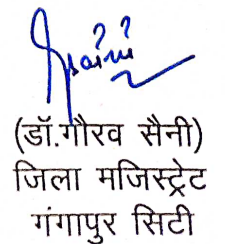 (डॉ.गौरव सैनी)
जिला मजिस्ट्रेट
गंगापुर सिटी